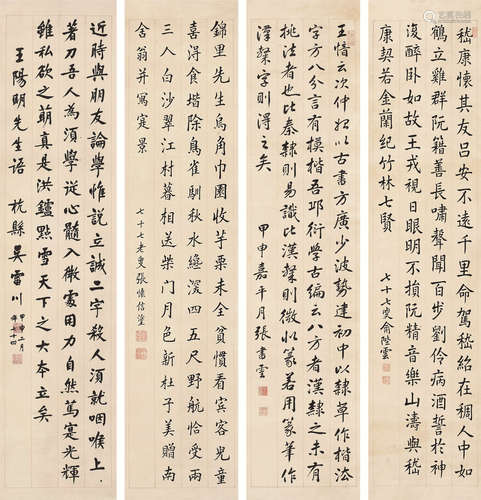 嵇康懷其友吕安不遠千里命駕嵇紹在稠人中如
鶴立雞群阮籍善長嘯聲聞百步劉伶病酒誓於神
復醉卧如故王戎視日眼明不損阮精音樂山濤與嵇
康契若金蘭紀竹林七賢
七十七叟俞陛雲
王愔云次仲始以古書方廣少波勢建初中以隸草作楷法
字方八分言有摸楷吾邱衍學古編云八分者漢隸之未有
挑法者也比秦隸則易識比漢隸則微似篆若用篆筆作
漢隸字則得之矣
甲申嘉平月張書雲
錦里先生烏角巾園收芋栗未全貧慣看賓客兒童
喜得食堦除鳥雀馴秋水纔深四五尺野航恰受兩
三人白沙翠江村暮相送柴門月色新杜子美贈南
舍翁并寫寔景
七十七老叟張懷信塗
近時與朋友論學惟說立誠二字殺人須就咽喉上
著刀吾人為須學從心髓入微處用力自然篤寔光輝
雖私欲之萌真是洪鑪點雪天下之大本立矣
王陽明先生語 杭縣吳雷川
甲申二月
年七十四